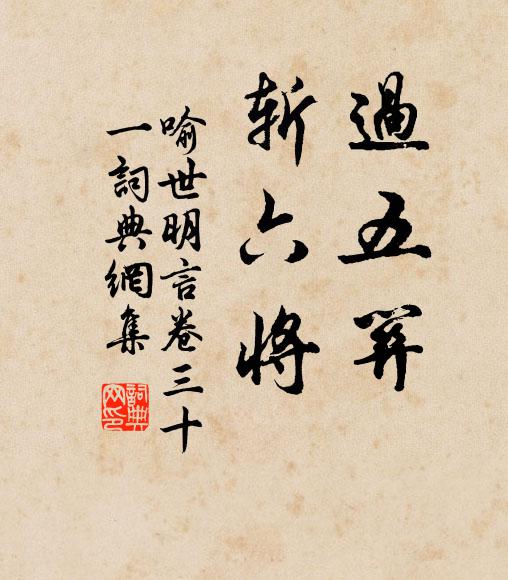 過五關
斬六將
喻世明言卷三十
一詞典網集
詞典
网印